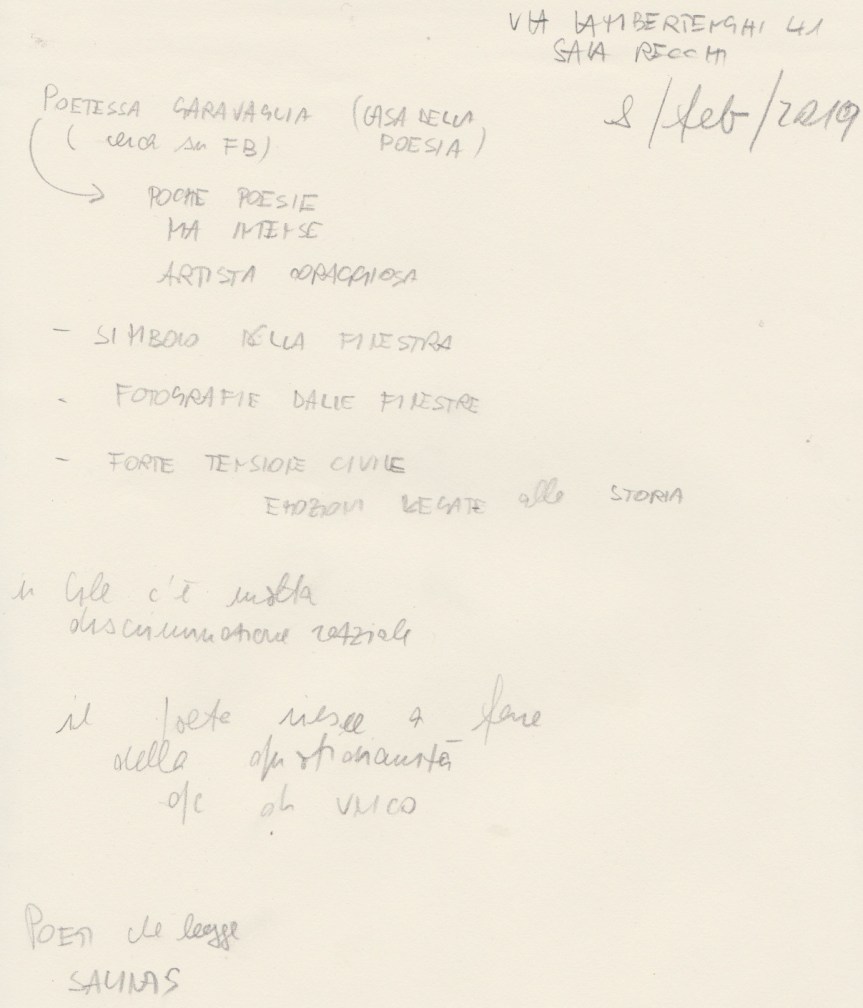 VIA LAMBERTENGHI 41
SALA RECCHI
8/feb/2019
POETESSA GARAVAGLIA (CASA DELLA
POESIA)
(cerca su FB)
POCHE POESIE
MA INTENSE
ARTISTA CORAGGIOSA
- SIMBOLO DELLA FINESTRA
- FOTOGRAFIE DALLE FINESTRE
- FORTE TENSIONE CIVILE
EMOZIONI LEGATE alla STORIA
in Cile c'è molta
discriminazione razziale
il poeta riesce a fare
della quotidianità
qc di UNICO
POETI che legge
SALINAS